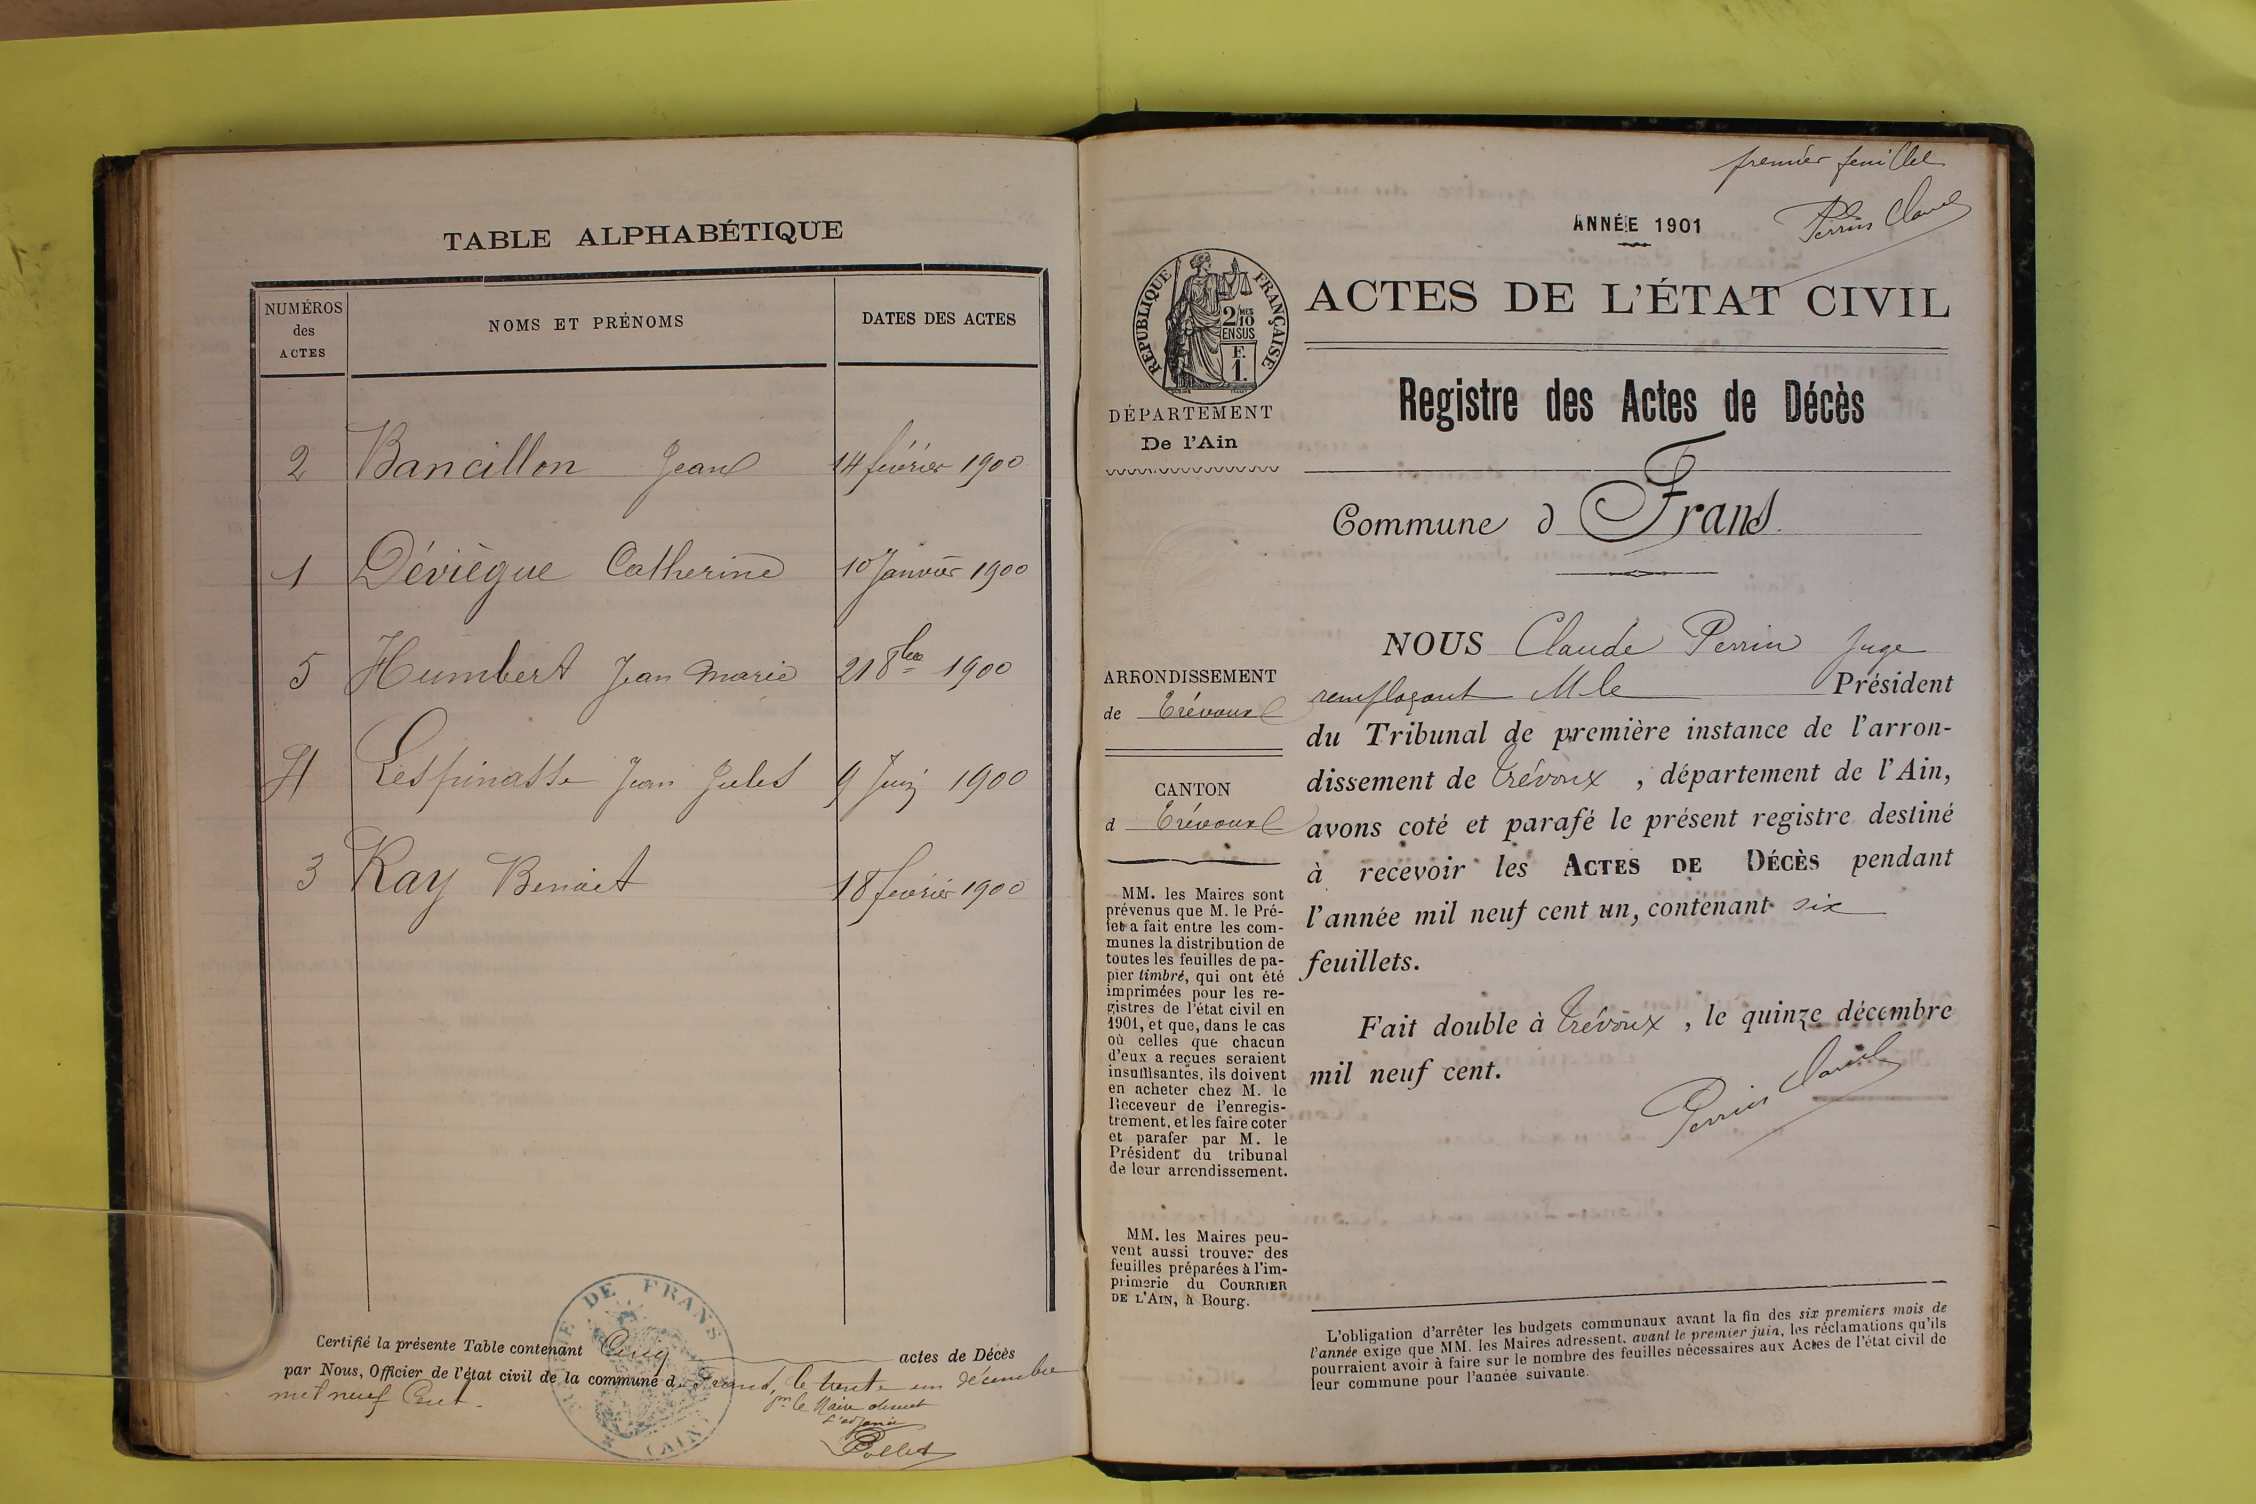 TABLE ALPHABÉTIQUE
NUMÉROS
des
ACTES
NOMS ET PRÉNOMS
DATES DES ACTES
2 Bancillon Jean 14 février 1900
1 Déviègue Catherine 10 Janvier 1900
5 Humbert Jean Marie 21 8bre 1900
4 Lespinasse Jean Jules 9 Juin 1900
3 Ray Benoit 18 février 1900
Certifié la présente Table contenant Cinq actes de Décès
par Nous, Officier de l'état civil de la commune d Frans, le trente un décembre
mil neuf Cent.
pr le Maire absent
L'adjoint
Pollet
DE FRANS
(AIN)
premier feuillet
Perrin Claude
ANNÉE 1901
RÉPUBLIQUE FRANÇAISE
2/10MES
EN SUS
F.
1.
DÉPARTEMENT
De l'Ain
ACTES DE L'ÉTAT CIVIL
Registre des Actes de Décès
Commune d Frans
ARRONDISSEMENT
de Trévoux
CANTON
d Trévoux
MM. les Maires sont
prévenus que M. le Pré-
fet a fait entre les com-
munes la distribution de
toutes les feuilles de pa-
pier timbré, qui ont été
imprimées pour les re-
gistres de l'état civil en
1901, et que, dans le cas
où celles que chacun
d'eux a reçues seraient
insuffisantes, ils doivent
en acheter chez M. le
Receveur de l'enregis-
trement, et les faire coter
et parafer par M. le
Président du tribunal
de leur arrondissement.
MM. les Maires peu-
vent aussi trouver des
feuilles préparées à l'im-
primerie du COURRIER
DE L'AIN, à Bourg.
NOUS Claude Perrin Juge
remplaçant M le Président
du Tribunal de première instance de l'arron-
dissement de Trévoux, département de l'Ain,
avons coté et parafé le présent registre destiné
à recevoir les ACTES DE DÉCÈS pendant
l'année mil neuf cent un, contenant six
feuillets.
Fait double à Trévoux, le quinze décembre
mil neuf cent.
Perrin Claude
L'obligation d'arrêter les budgets communaux avant la fin des six premiers mois de
l'année exige que MM. les Maires adressent, avant le premier juin, les réclamations qu'ils
pourraient avoir à faire sur le nombre des feuilles nécessaires aux Actes de l'état civil de
leur commune pour l'année suivante.